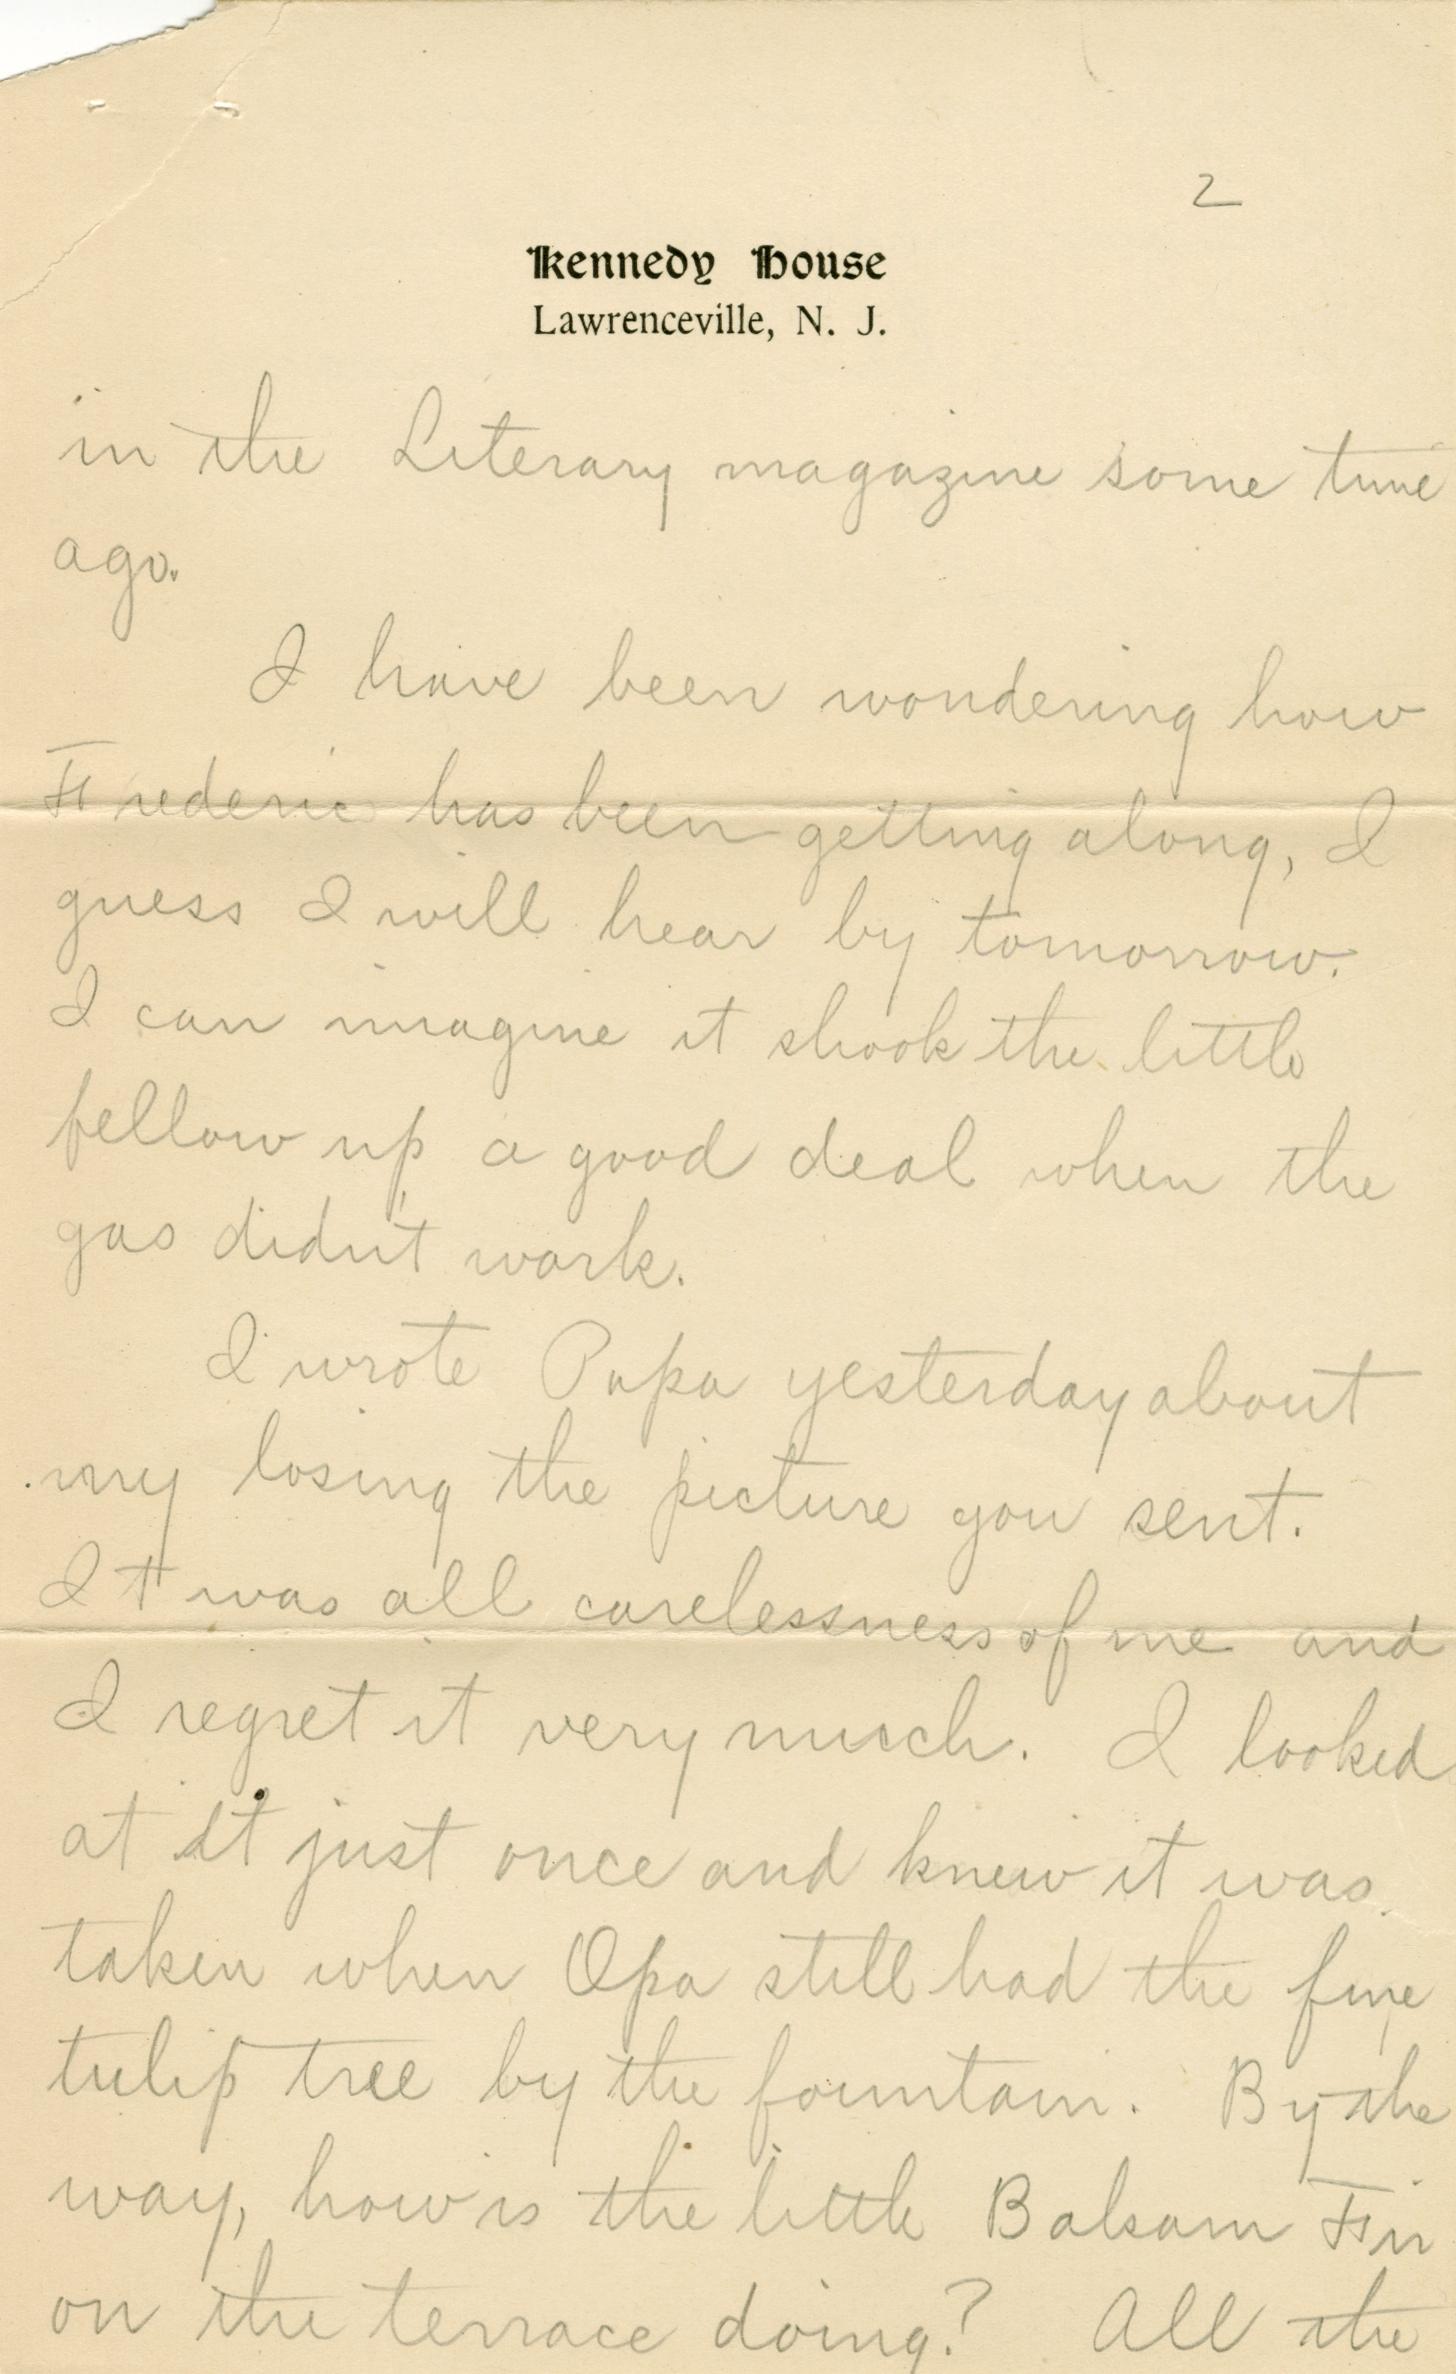 2
Kennedy House
Lawrenceville, N. J.
in the Literary magazine some time
ago.
I have been wondering how
Frederic has been getting along, I
guess I will hear by tomorrow.
I can imagine it shook the little
fellow up a good deal when the
gas didn't work.
I wrote Papa yesterday about
my losing the picture you sent.
It was all carelessness of me and
I regret it very much. I looked
at it just once and knew it was
taken when Opa still had the fine
tulip tree by the fountain. By the
way, how is the little Balsam Fir
on the terrace doing? All the